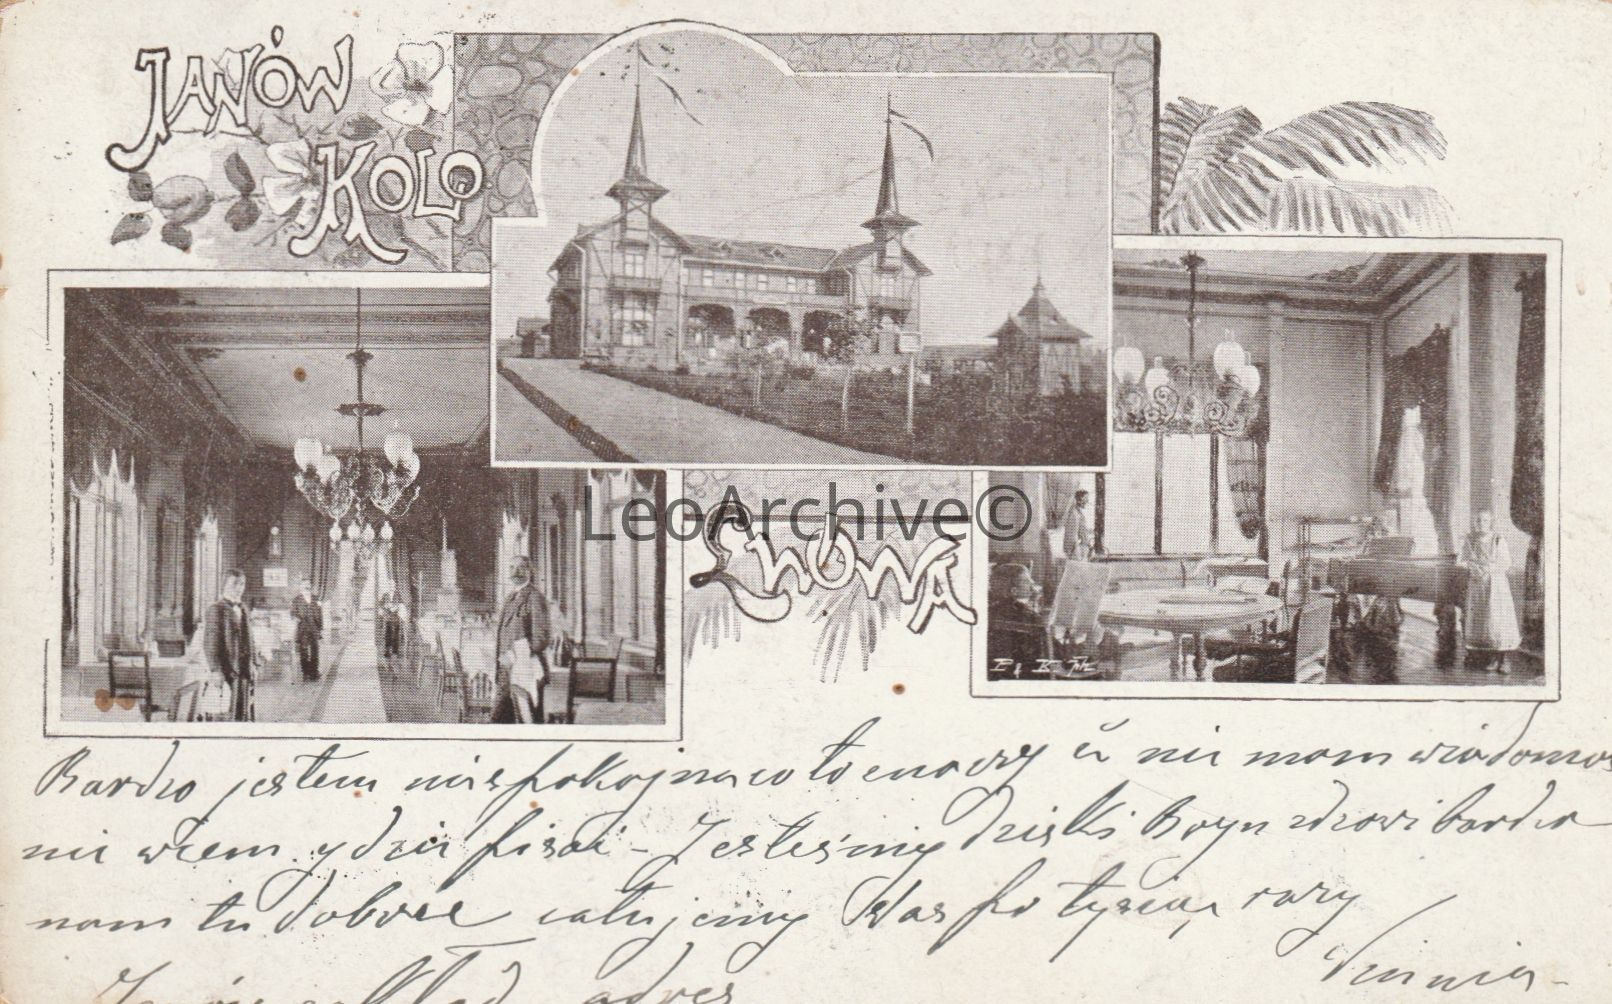 JANÓW
KOŁO
LWOWA
LeoArchive©
P & B Fot.
Bardzo jestem niespokojna co to znaczy że nie mam wiadomoś
nie wiem gdzie pisać - Jesteśmy dzięki Bogu zdrowi bardzo
nam tu dobrze całujemy Was po tysiąc razy
Janów zakład adres